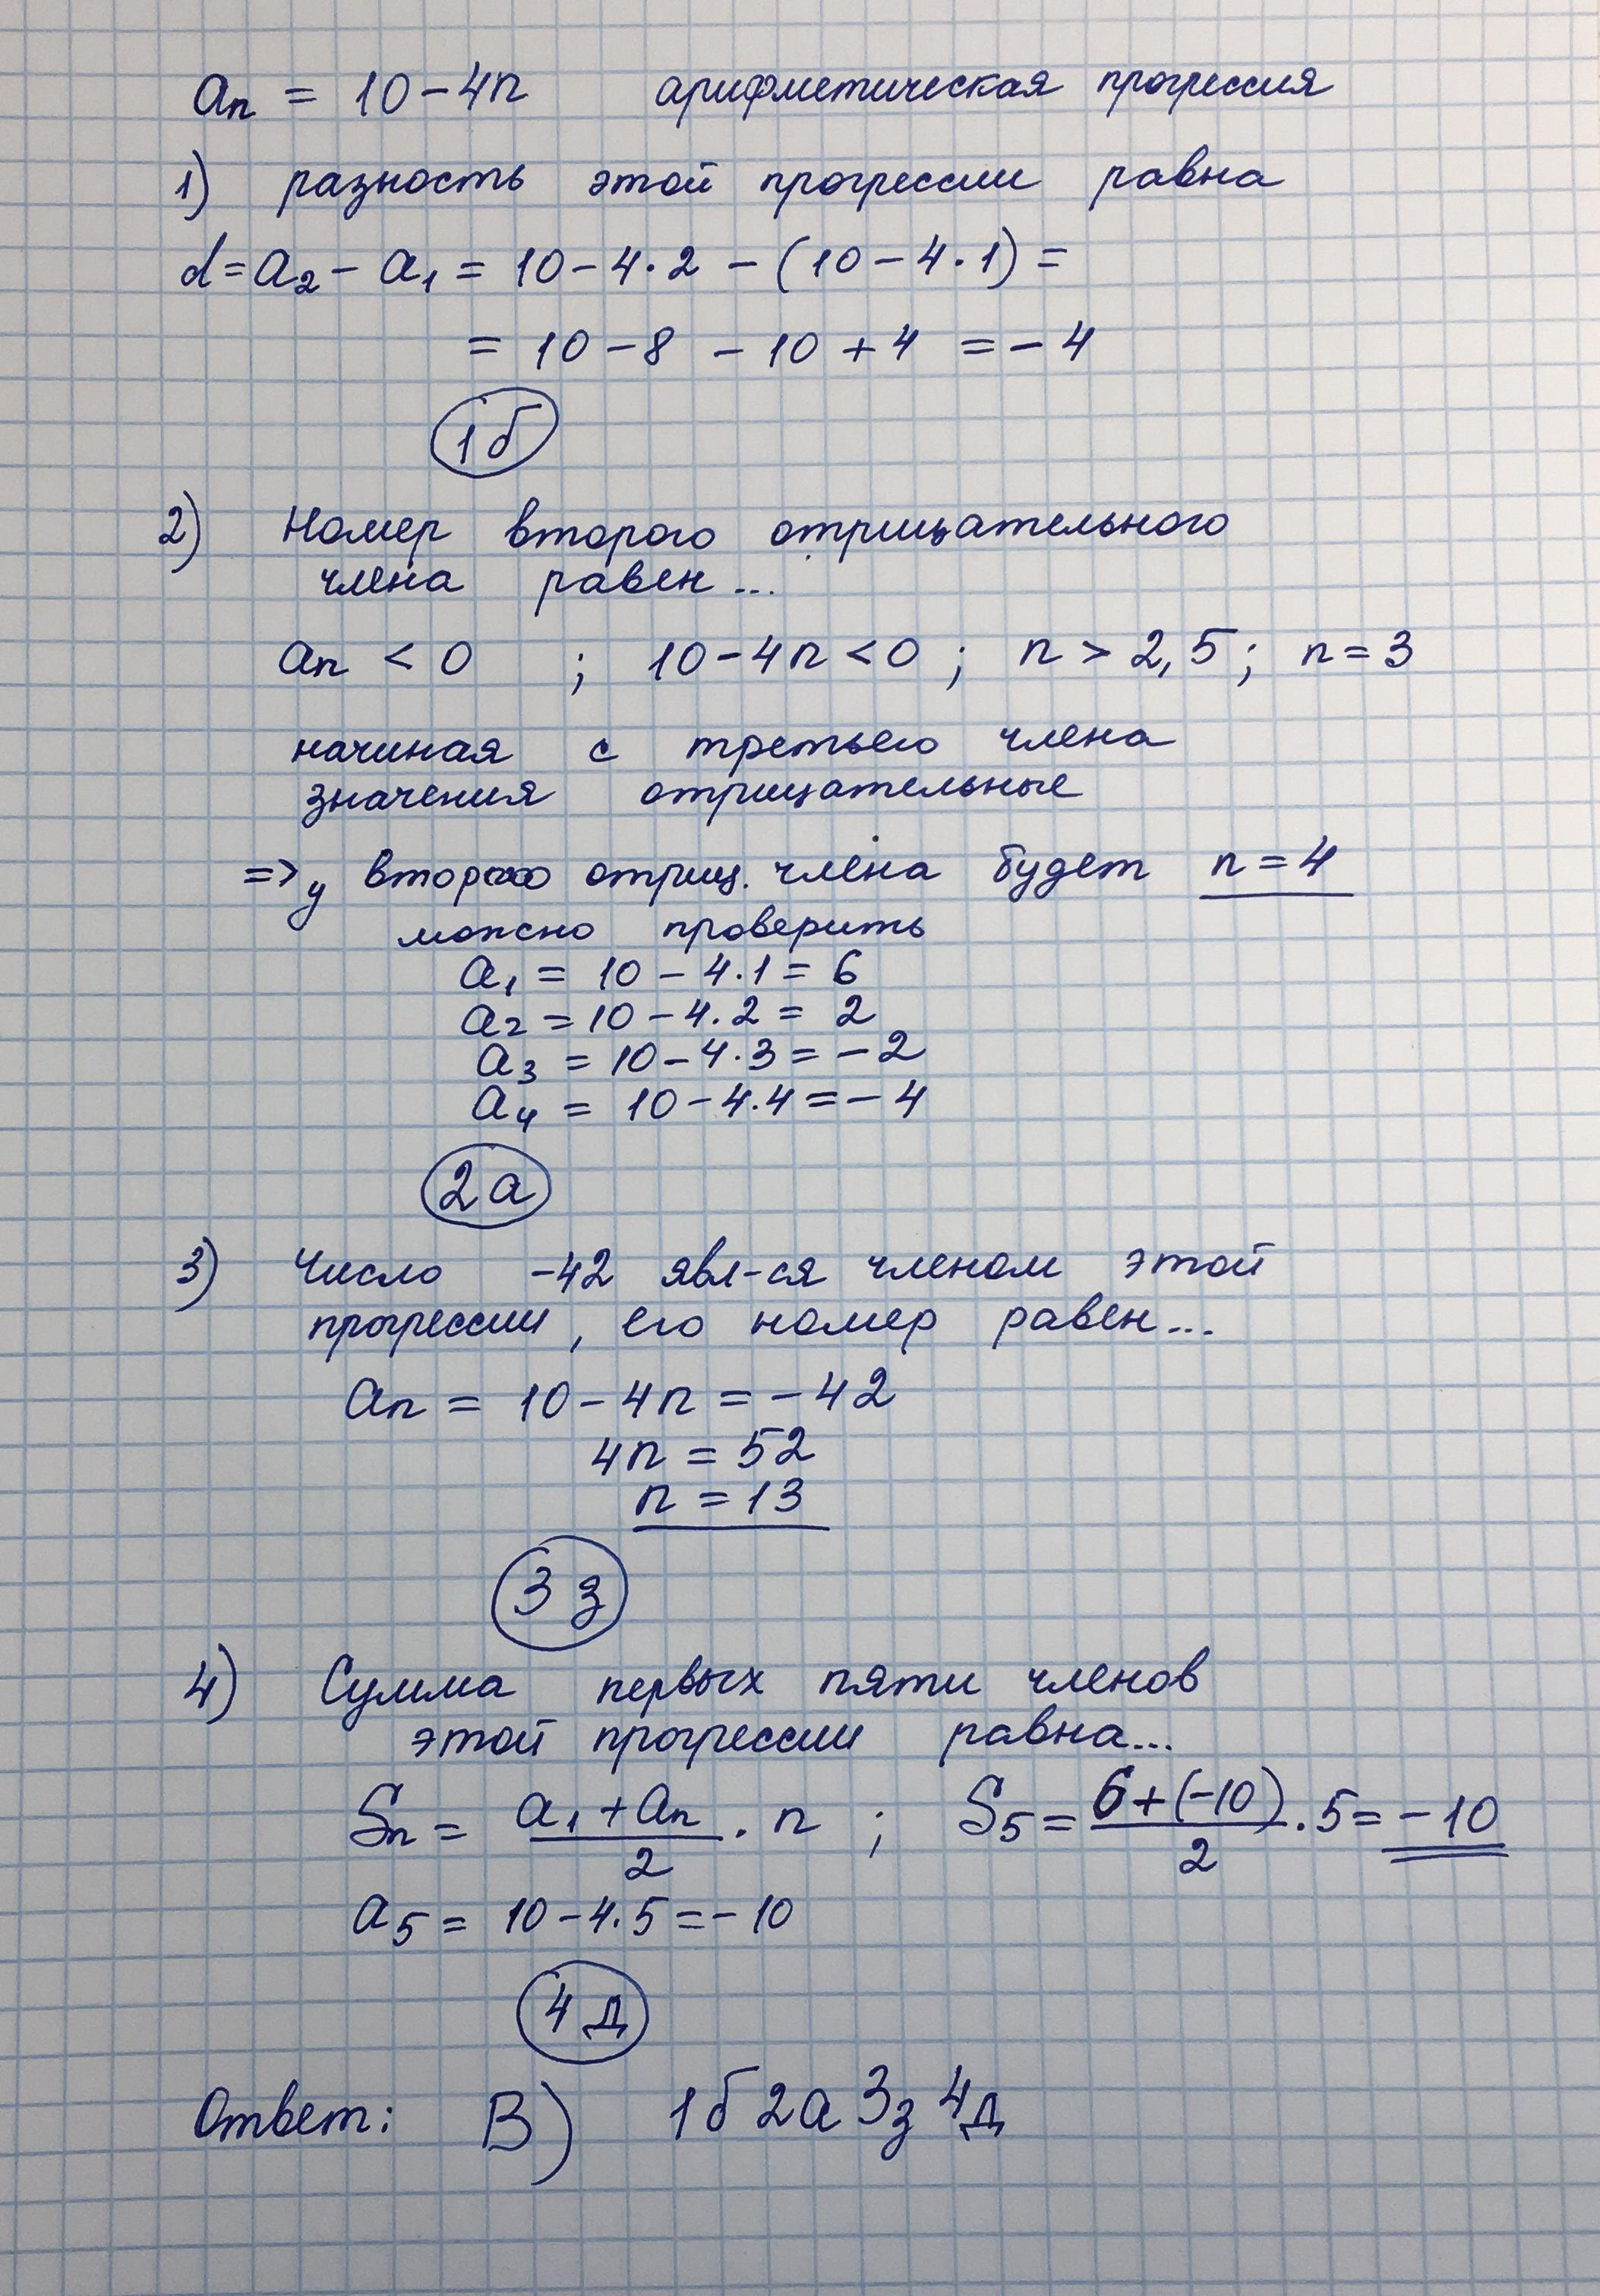 aₙ = 10 – 4n арифметическая прогрессия
1) разность этой прогрессии равна
d = a₂ – a₁ = 10 – 4·2 – (10 – 4·1) =
= 10 – 8 – 10 + 4 = – 4
1б
2) Номер второго отрицательного
члена равен ...
aₙ < 0 ; 10 – 4n < 0 ; n > 2,5 ; n = 3
начиная с третьего члена
значения отрицательные
=> у второго отриц. члена будет n = 4
можно проверить
a₁ = 10 – 4·1 = 6
a₂ = 10 – 4·2 = 2
a₃ = 10 – 4·3 = – 2
a₄ = 10 – 4·4 = – 4
2а
3) Число –42 явл-ся членом этой
прогрессии, его номер равен ...
aₙ = 10 – 4n = – 42
4n = 52
n = 13
3з
4) Сумма первых пяти членов
этой прогрессии равна ...
Sₙ = (a₁ + aₙ)/2 · n ; S₅ = (6 + (–10))/2 · 5 = – 10
a₅ = 10 – 4·5 = – 10
4д
Ответ: В) 1б 2а 3з 4д